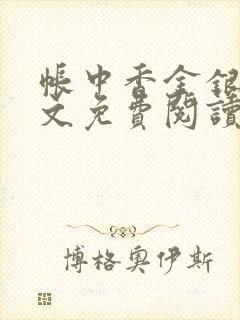 帳中香金銀
文免費閱讀
博格奧伊斯